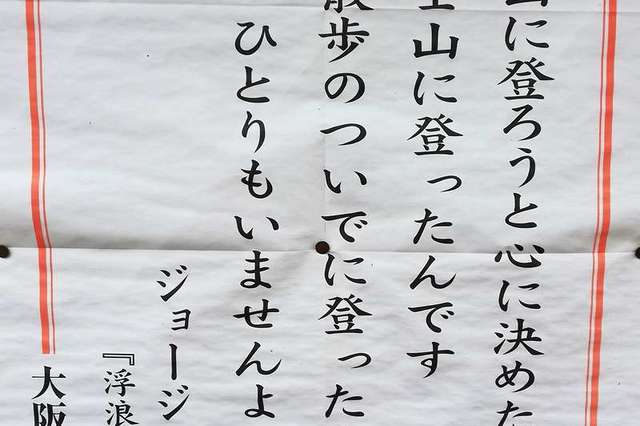 山に登ろうと心に決めた
士山に登ったんです
散歩のついでに登った
ひとりもいませんよ
ジョージ
『浮浪
大阪